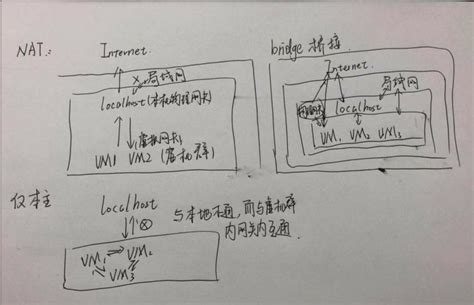 NAT:
Internet
× 局域网
localhost (本机物理网关)
(虚拟网关)
VM1 VM2 (虚机群)
bridge 桥接
Internet
局域网
localhost
VM1 VM2 VM3
仅本主
localhost
⊗
与本地不通,而与虚机群
内网关内互通
VM1 VM2
VM3